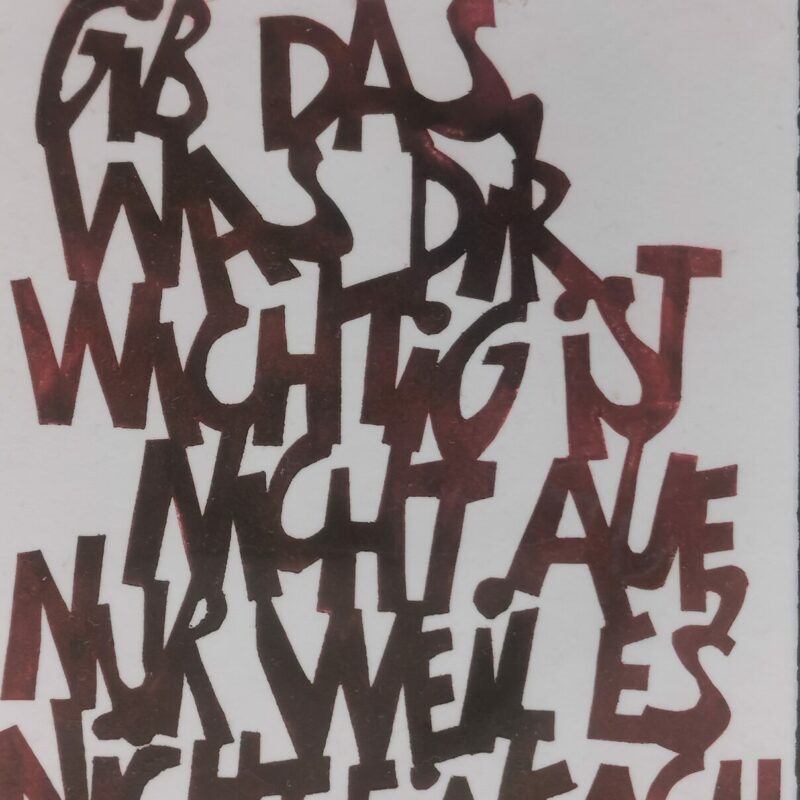 GIB DAS,
WAS DIR
WICHTIG IST
NICHT AUF,
NUR WEIL ES
NICHT EINFACH